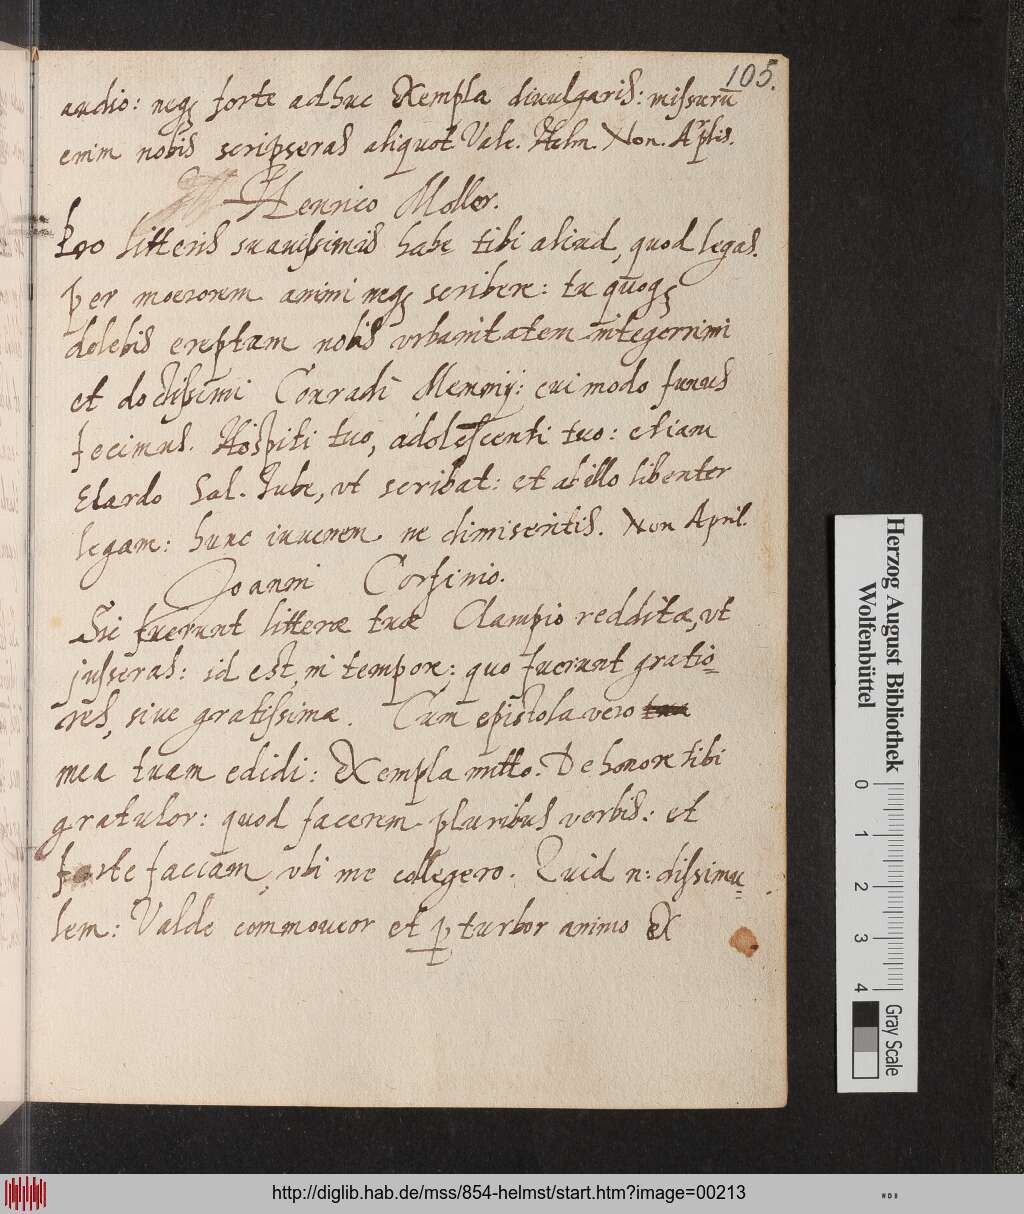 105.
audio: neq₃ forte adhuc Exempla diuulgaris: missurū
enim nobis scripseras aliquot. Vale. Helm. Non. Aprlis.
Henrico Moller.
Pro litteris suauissimis habe tibi aliud, quod legas.
per moerorem animi neq₃ scribere: tu quoq₃
dolebis ereptam nobis vrbanitatem integerrimi
et doctissimi Conradi Memmij: cui modo funus
fecimus. Hospiti tuo, adolescenti tuo: etiam
Elardo Sal. Jube, vt scribat: et ab illo libenter
legam: hunc iuuenem ne dimiseritis. Non April.
Joanni Corfinio.
Sic fuerunt litteræ tuæ Clampio redditæ, vt
jusseras: id est, in tempore: quo fuerunt gratio=
res, siue gratissimæ. Cum epistola vero tua
mea tuam edidi: Exempla mitto. De honore tibi
gratulor: quod facerem pluribus verbis: et
forte faciam, vbi me collegero. Quid n: dissimu=
lem: Valde commoueor et ꝑturbor animo ex
Herzog August Bibliothek
Wolfenbüttel
0 1 2 3 4
Gray Scale
http://diglib.hab.de/mss/854-helmst/start.htm?image=00213